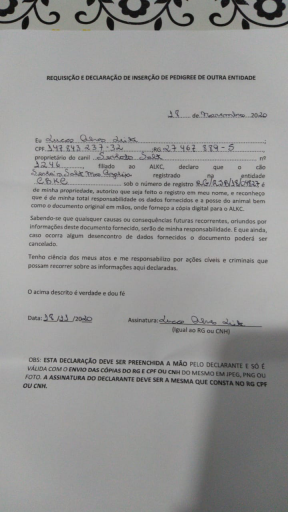 REQUISIÇÃO E DECLARAÇÃO DE INSERÇÃO DE PEDIGREE DE OUTRA ENTIDADE
18 de Novembro 2020
Eu
CPF 348 843 237-32 RG 27 467 889-5
proprietário do canil nº
3246 filiado ao ALKC, declaro que o cão
registrado na entidade
CBKC sob o número de registro e
de minha propriedade, autorizo que seja feito o registro em meu nome, e reconheço
que é de minha total responsabilidade os dados fornecidos e a posse do animal bem
como o documento original em mãos, onde forneço a cópia digital para o ALKC.
Sabendo-se que quaisquer causas ou consequências futuras recorrentes, oriundos por
informações deste documento fornecido, serão de minha responsabilidade. E que ainda,
caso ocorra algum desencontro de dados fornecidos o documento poderá ser
cancelado.
Tenho ciência dos meus atos e me responsabilizo por ações cíveis e criminais que
possam recorrer sobre as informações aqui declaradas.
O acima descrito é verdade e dou fé
Data: 18/11/2020 Assinatura:
(igual ao RG ou CNH)
OBS: ESTA DECLARAÇÃO DEVE SER PREENCHIDA A MÃO PELO DECLARANTE E SÓ É
VÁLIDA COM O ENVIO DAS CÓPIAS DO RG E CPF OU CNH DO MESMO EM JPEG, PNG OU
FOTO. A ASSINATURA DO DECLARANTE DEVE SER A MESMA QUE CONSTA NO RG CPF
OU CNH.